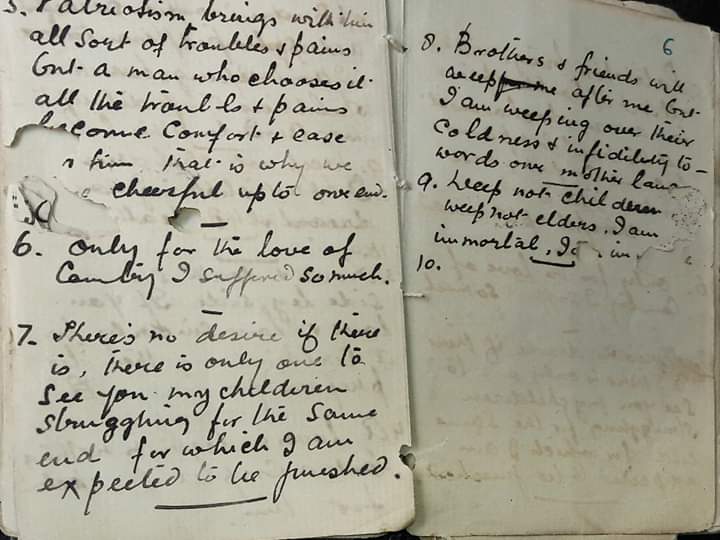 5. Patriotism brings with him
all sort of troubles & pains
but a man who chooses it
all the troubls & pains
become comfort & ease
him. That is why we
cheerful upto our end.
6. only for the love of
Country I suffered so much.
7. There's no desire if there
is, there is only one to
see you my childeren
struggling for the same
end for which I am
expected to be punished.
6
8. Brothers & friends will
weep after me but
I am weeping over their
coldness & infidility to-
words our mother land
9. Weep not childeren
weep not elders, I am
immortal, I
10.